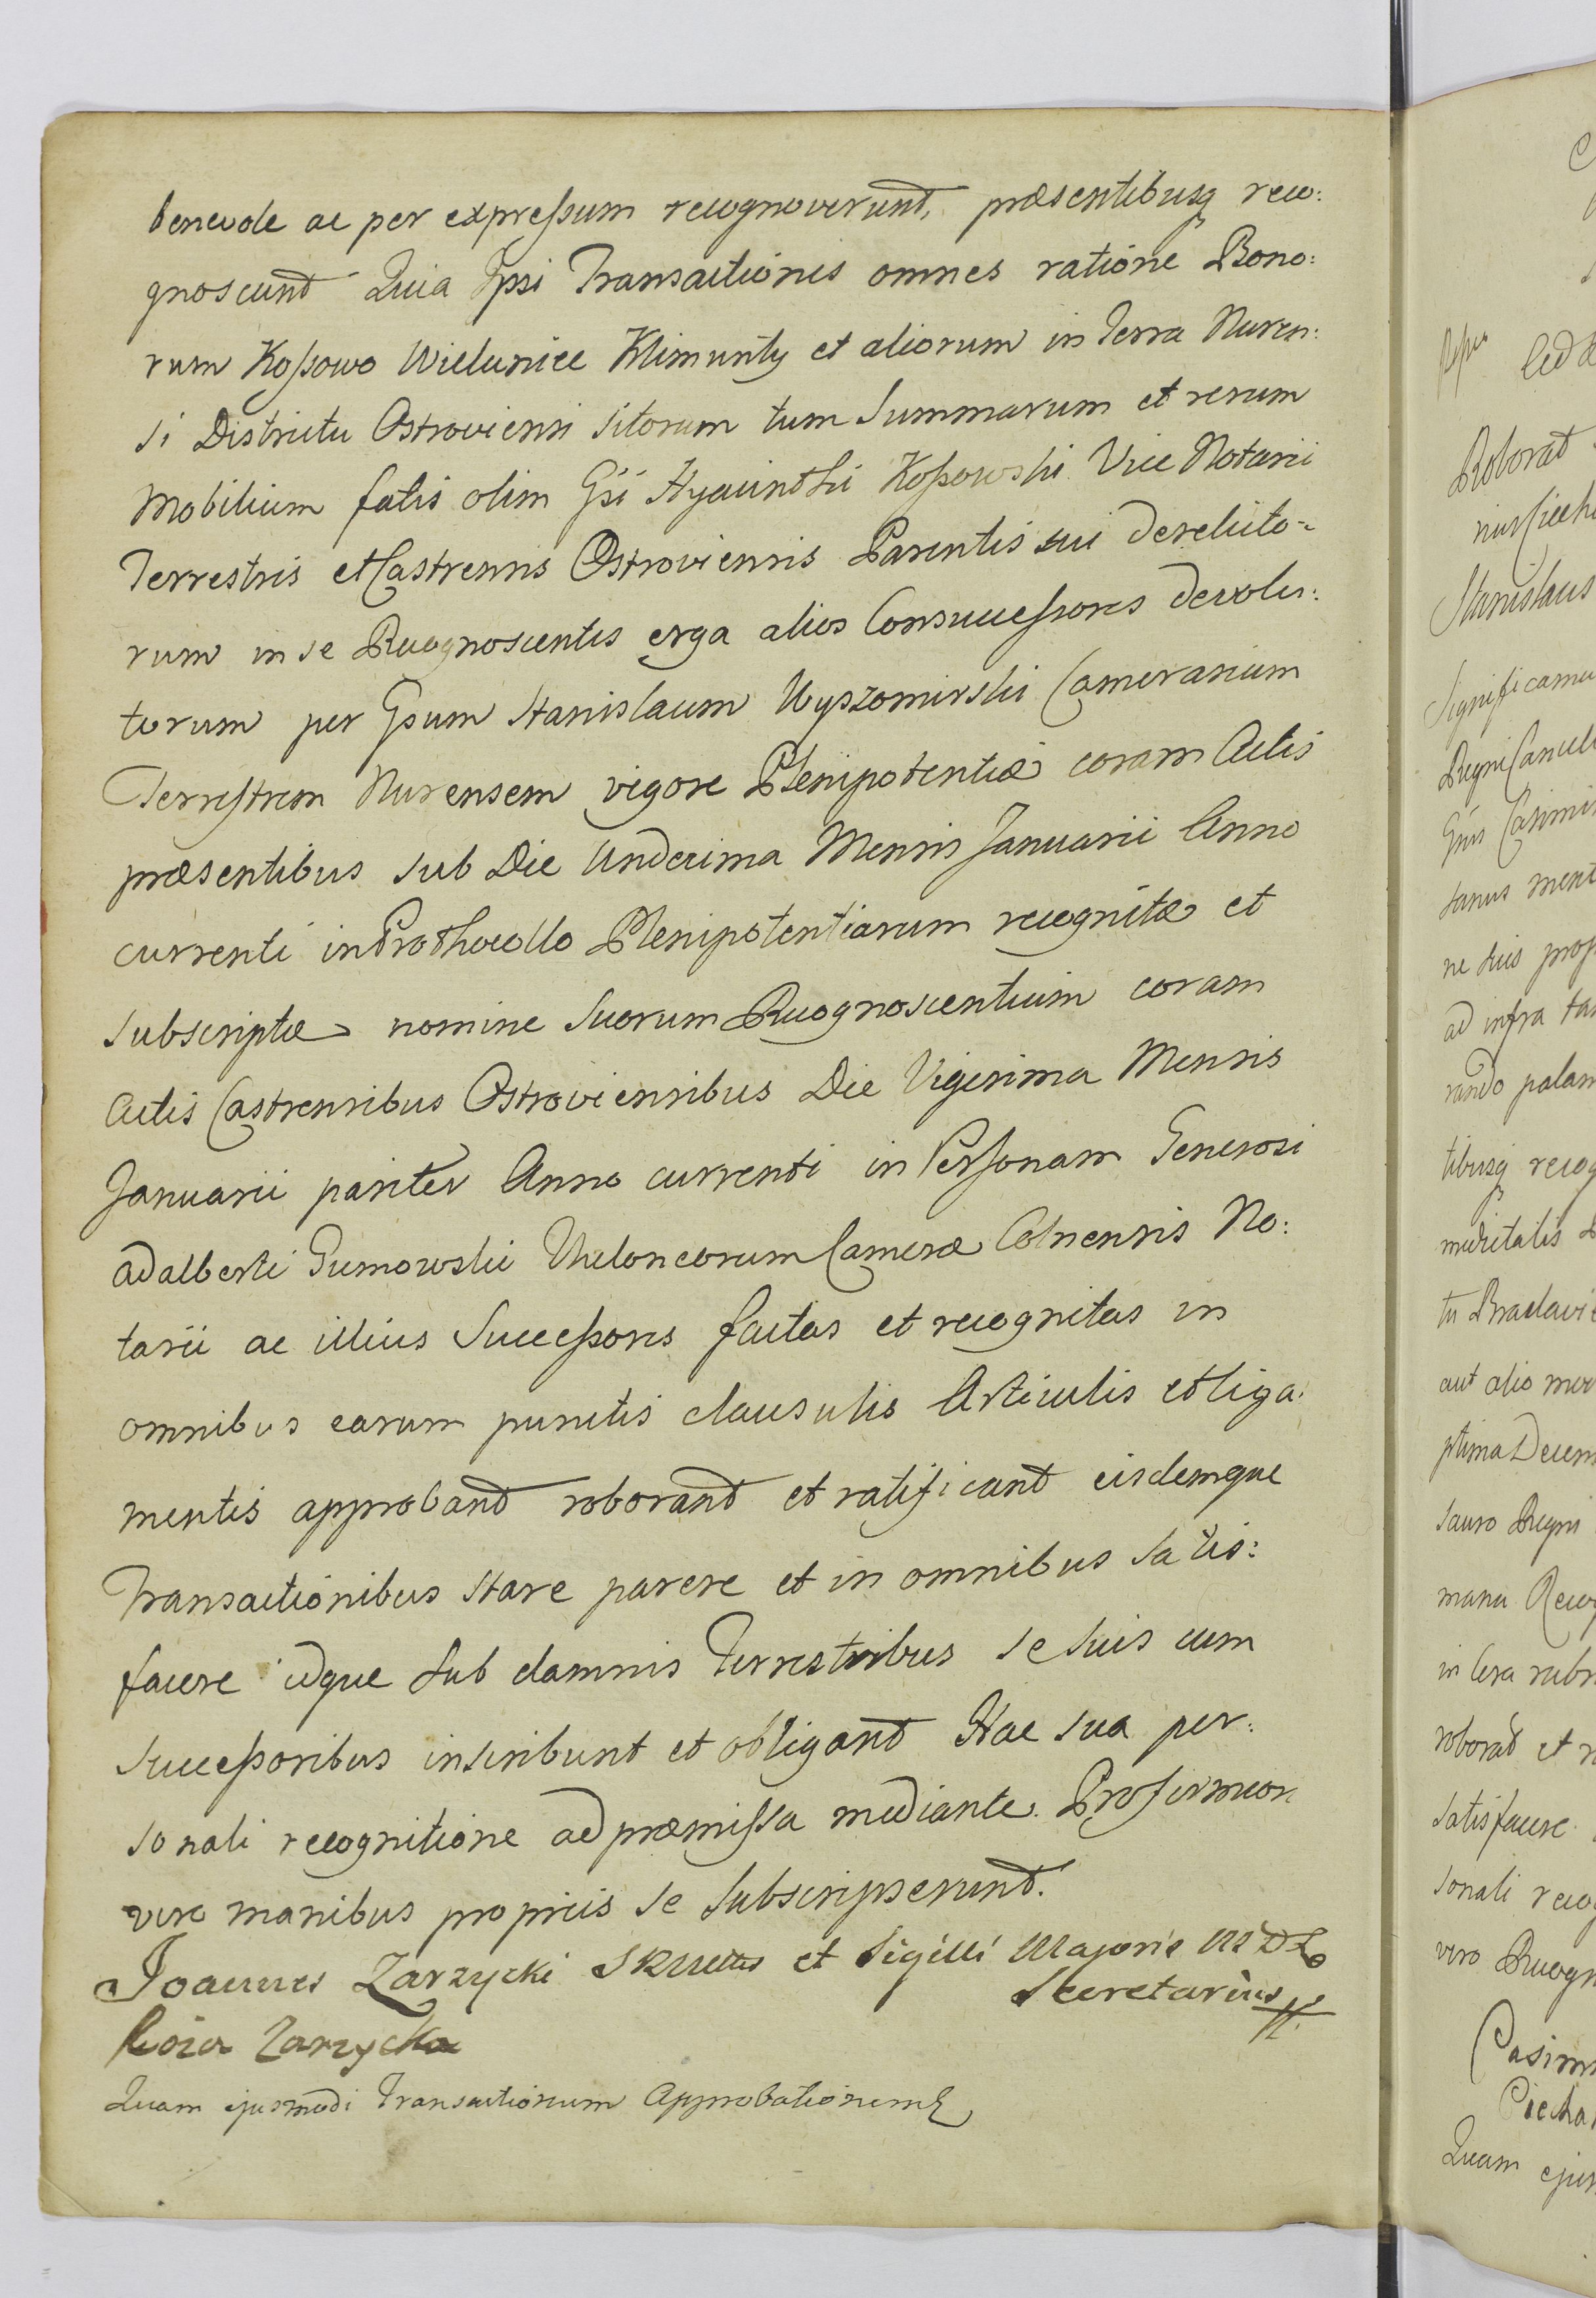 benevole ac per expressum recognoverunt, præsentibusq reco:
gnoscunt Quia Ipsi Transactiones omnes ratione Bono:
rum Kossowo Wielunice Klimunty et aliorum in Terra Nuren:
si Districtu Ostroviensi sitorum tum Summarum et rerum
Mobilium fatis olim Gsi Hyacinthi Kossowski Vice Notarii
Terrestris et Castrensis Ostroviensis Parentis sui derelicto=
rum in se Recognoscentes erga alios Consuccessores devolu:
torum per Gsum Stanislaum Wyszomirski Camerarium
Terrestrem Nurensem vigore Plenipotentiæ coram Actis
præsentibus sub Die Undecima Mensis Januarii Anno
currenti in Prothocollo Plenipotentiarum recognitæ et
subscriptæ nomine Suorum Recognoscentium coram
Actis Castrensibus Ostroviensibus Die Vigesima Mensis
Januarii pariter Anno currenti in Personam Generosi
Adalberti Gumowski Theloneorum Cameræ Colnensis No:
tarii ac illius Successores factas et recognitas in
omnibus earum punctis clausulis Articulis et liga:
mentis approbant roborant et ratificant eisdemque
Transactionibus stare parere et in omnibus satis:
facere idque sub damnis Terrestribus se suis cum
successoribus inscribunt et obligant Hac sua per:
sonali recognitione ad præmissa mediante. Pro firmiori
vero manibus propriis se subscripserunt.
Joannes Zarzycki et Sigilli Majoris
Secretarius
Róża Zarzycka
Quam ejusmodi Transactionum Approbationem
Roborat
Stanislaus
Significamus
sanus ment
ne suis prop
ad infra
rando palam
tibusq recog
medietatis
aut alio
ptima Decem
sauro Regni
manu Recog
roborat et r
satisfacere
sonali recog
vero Recogn
Casim
Ciecha
Quam ejus